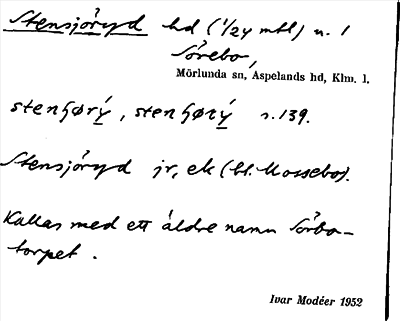 Stensjöryd hd (1/24 mtl) n. 1
Sörebo,
Mörlunda sn, Aspelands hd, Klm. l.
s. 139.
Stensjöryd jr, ek (bl. Mossebo).
Kallas med ett äldre namn Sörbo-
torpet.
Ivar Modéer 1952